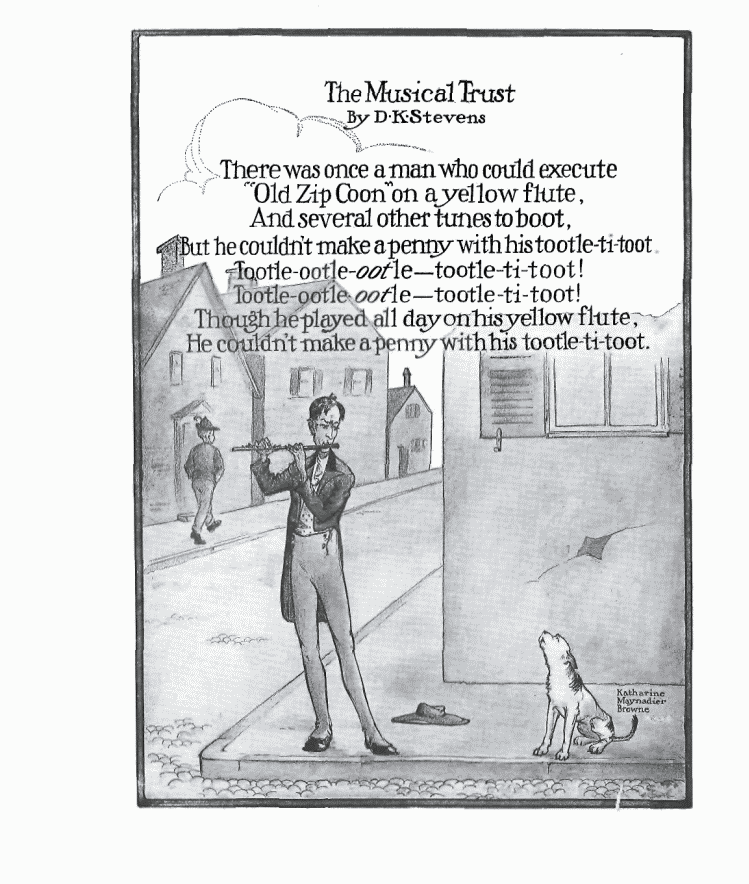 The Musical Trust
By D.K.Stevens
There was once a man who could execute
"Old Zip Coon" on a yellow flute,
And several other tunes to boot,
But he couldn't make a penny with his tootle-ti-toot.
Tootle-ootle-ootle—tootle-ti-toot!
Tootle-ootle-ootle—tootle-ti-toot!
Though he played all day on his yellow flute,
He couldn't make a penny with his tootle-ti-toot.
Katharine
Maynadier
Browne